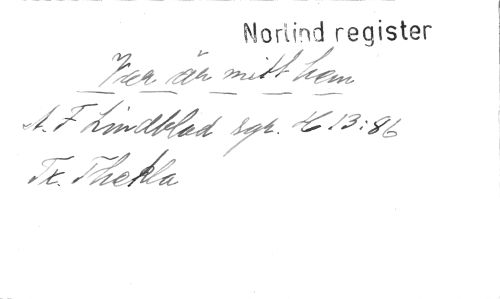 Norlind register
Var är mitt hem
A. F Lindblad sgr. H 13:86
Tx. Thekla